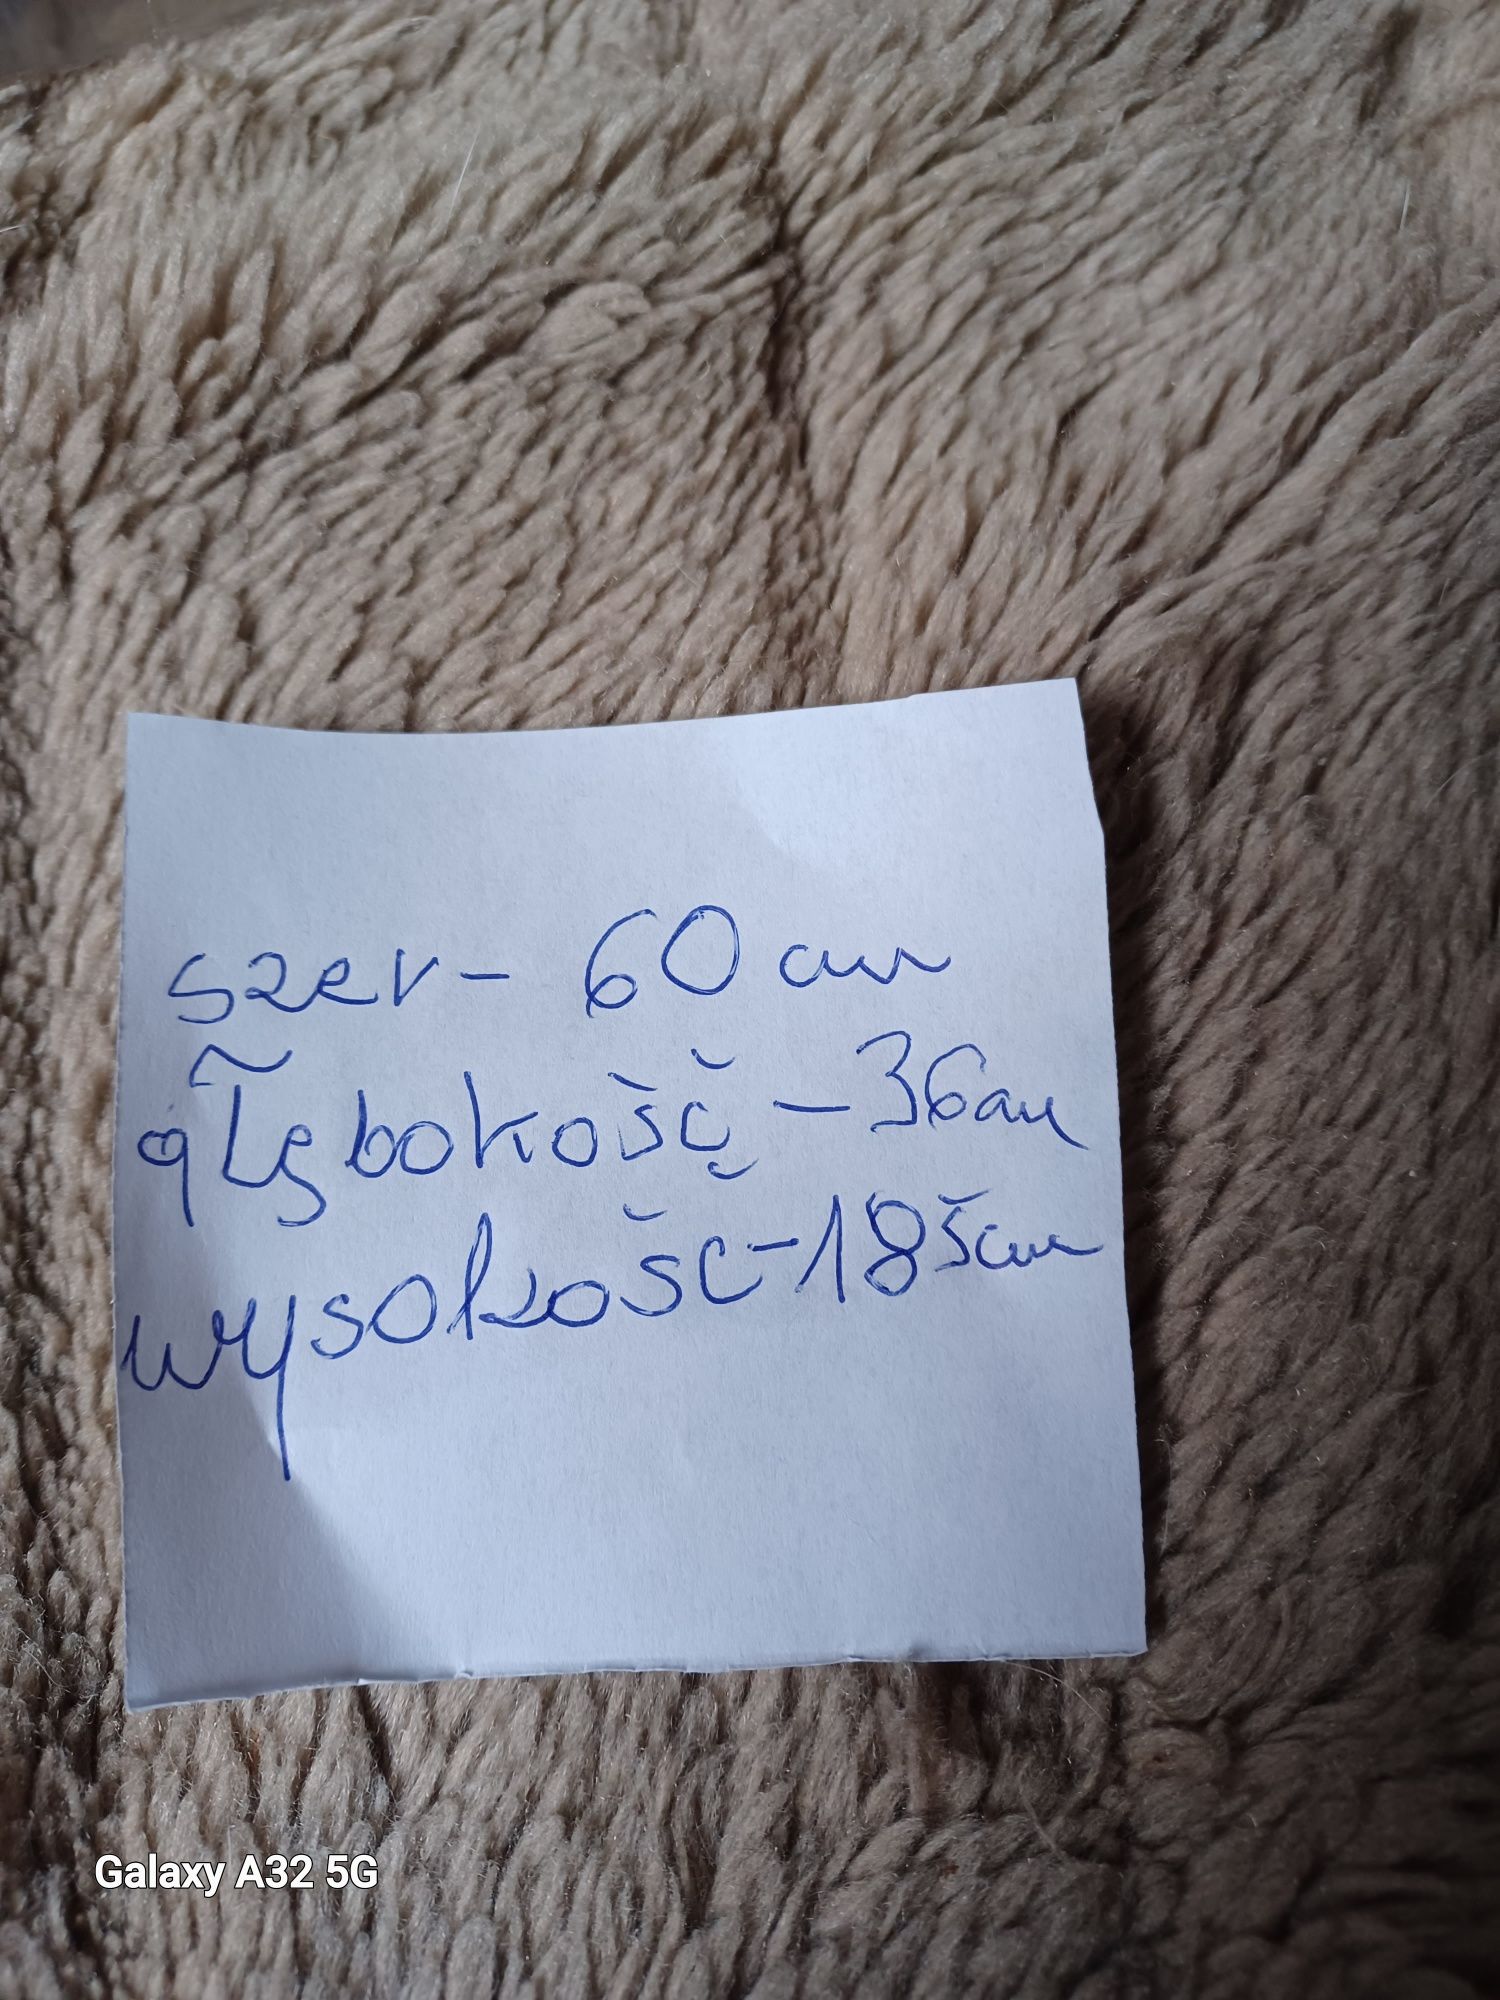 szer - 60 cm
głębokość - 36 cm
wysokość - 185 cm
Galaxy A32 5G